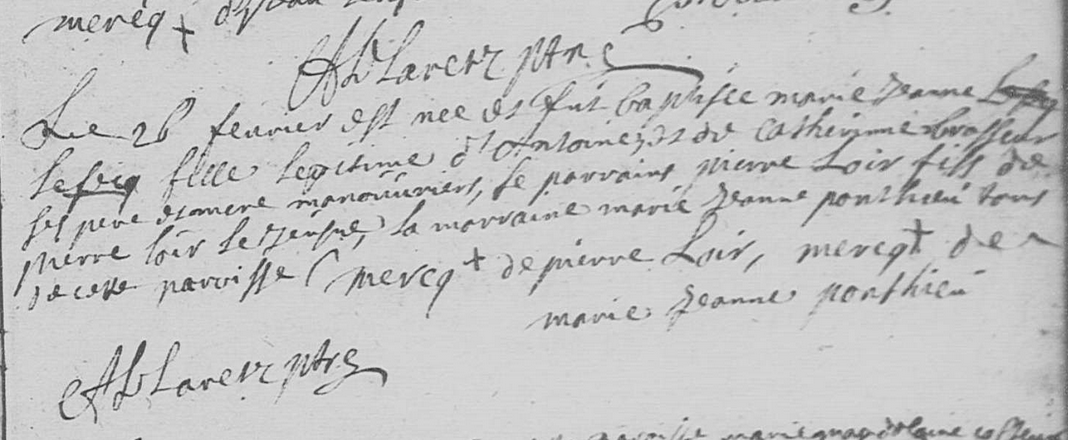 mercq +
ptre
Le 26 fevrier est nee et fut baptisee marie Jeanne
fille legitime d'Antoine, et de Catherinne brasseur
ses pere et mere manouvriers, le parrains pierre Loir fils de
pierre loir le Jeusne, la marraine marie Jeanne ponthieu tous
de cette paroisse / mercq + de pierre Loir, mercq + de
marie Jeanne ponthieu
ptre